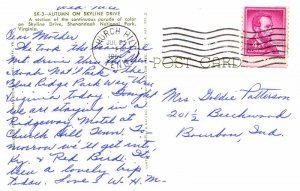 Wed. Nite
SK-3-AUTUMN ON SKYLINE DRIVE
A section of the continuous parade of color
on Skyline Drive, Shenandoah National Park,
Virginia.
Dear Mother
We took the Sky Line
drive thru the
Nat'l Park & the
Blue Ridge Park Way thru
Virginia today. Tonight
we are staying in a
Ridgeway Motel at
Church Hill Tenn. To-
morrow we'll get into
Ky. & Red Bird. It's
been a lovely trip
today. Love
CHURCH HILL
TENN.
POST CARD
Mrs. Goldie Patterson
201½ Beechwood
Bourbon, Ind.